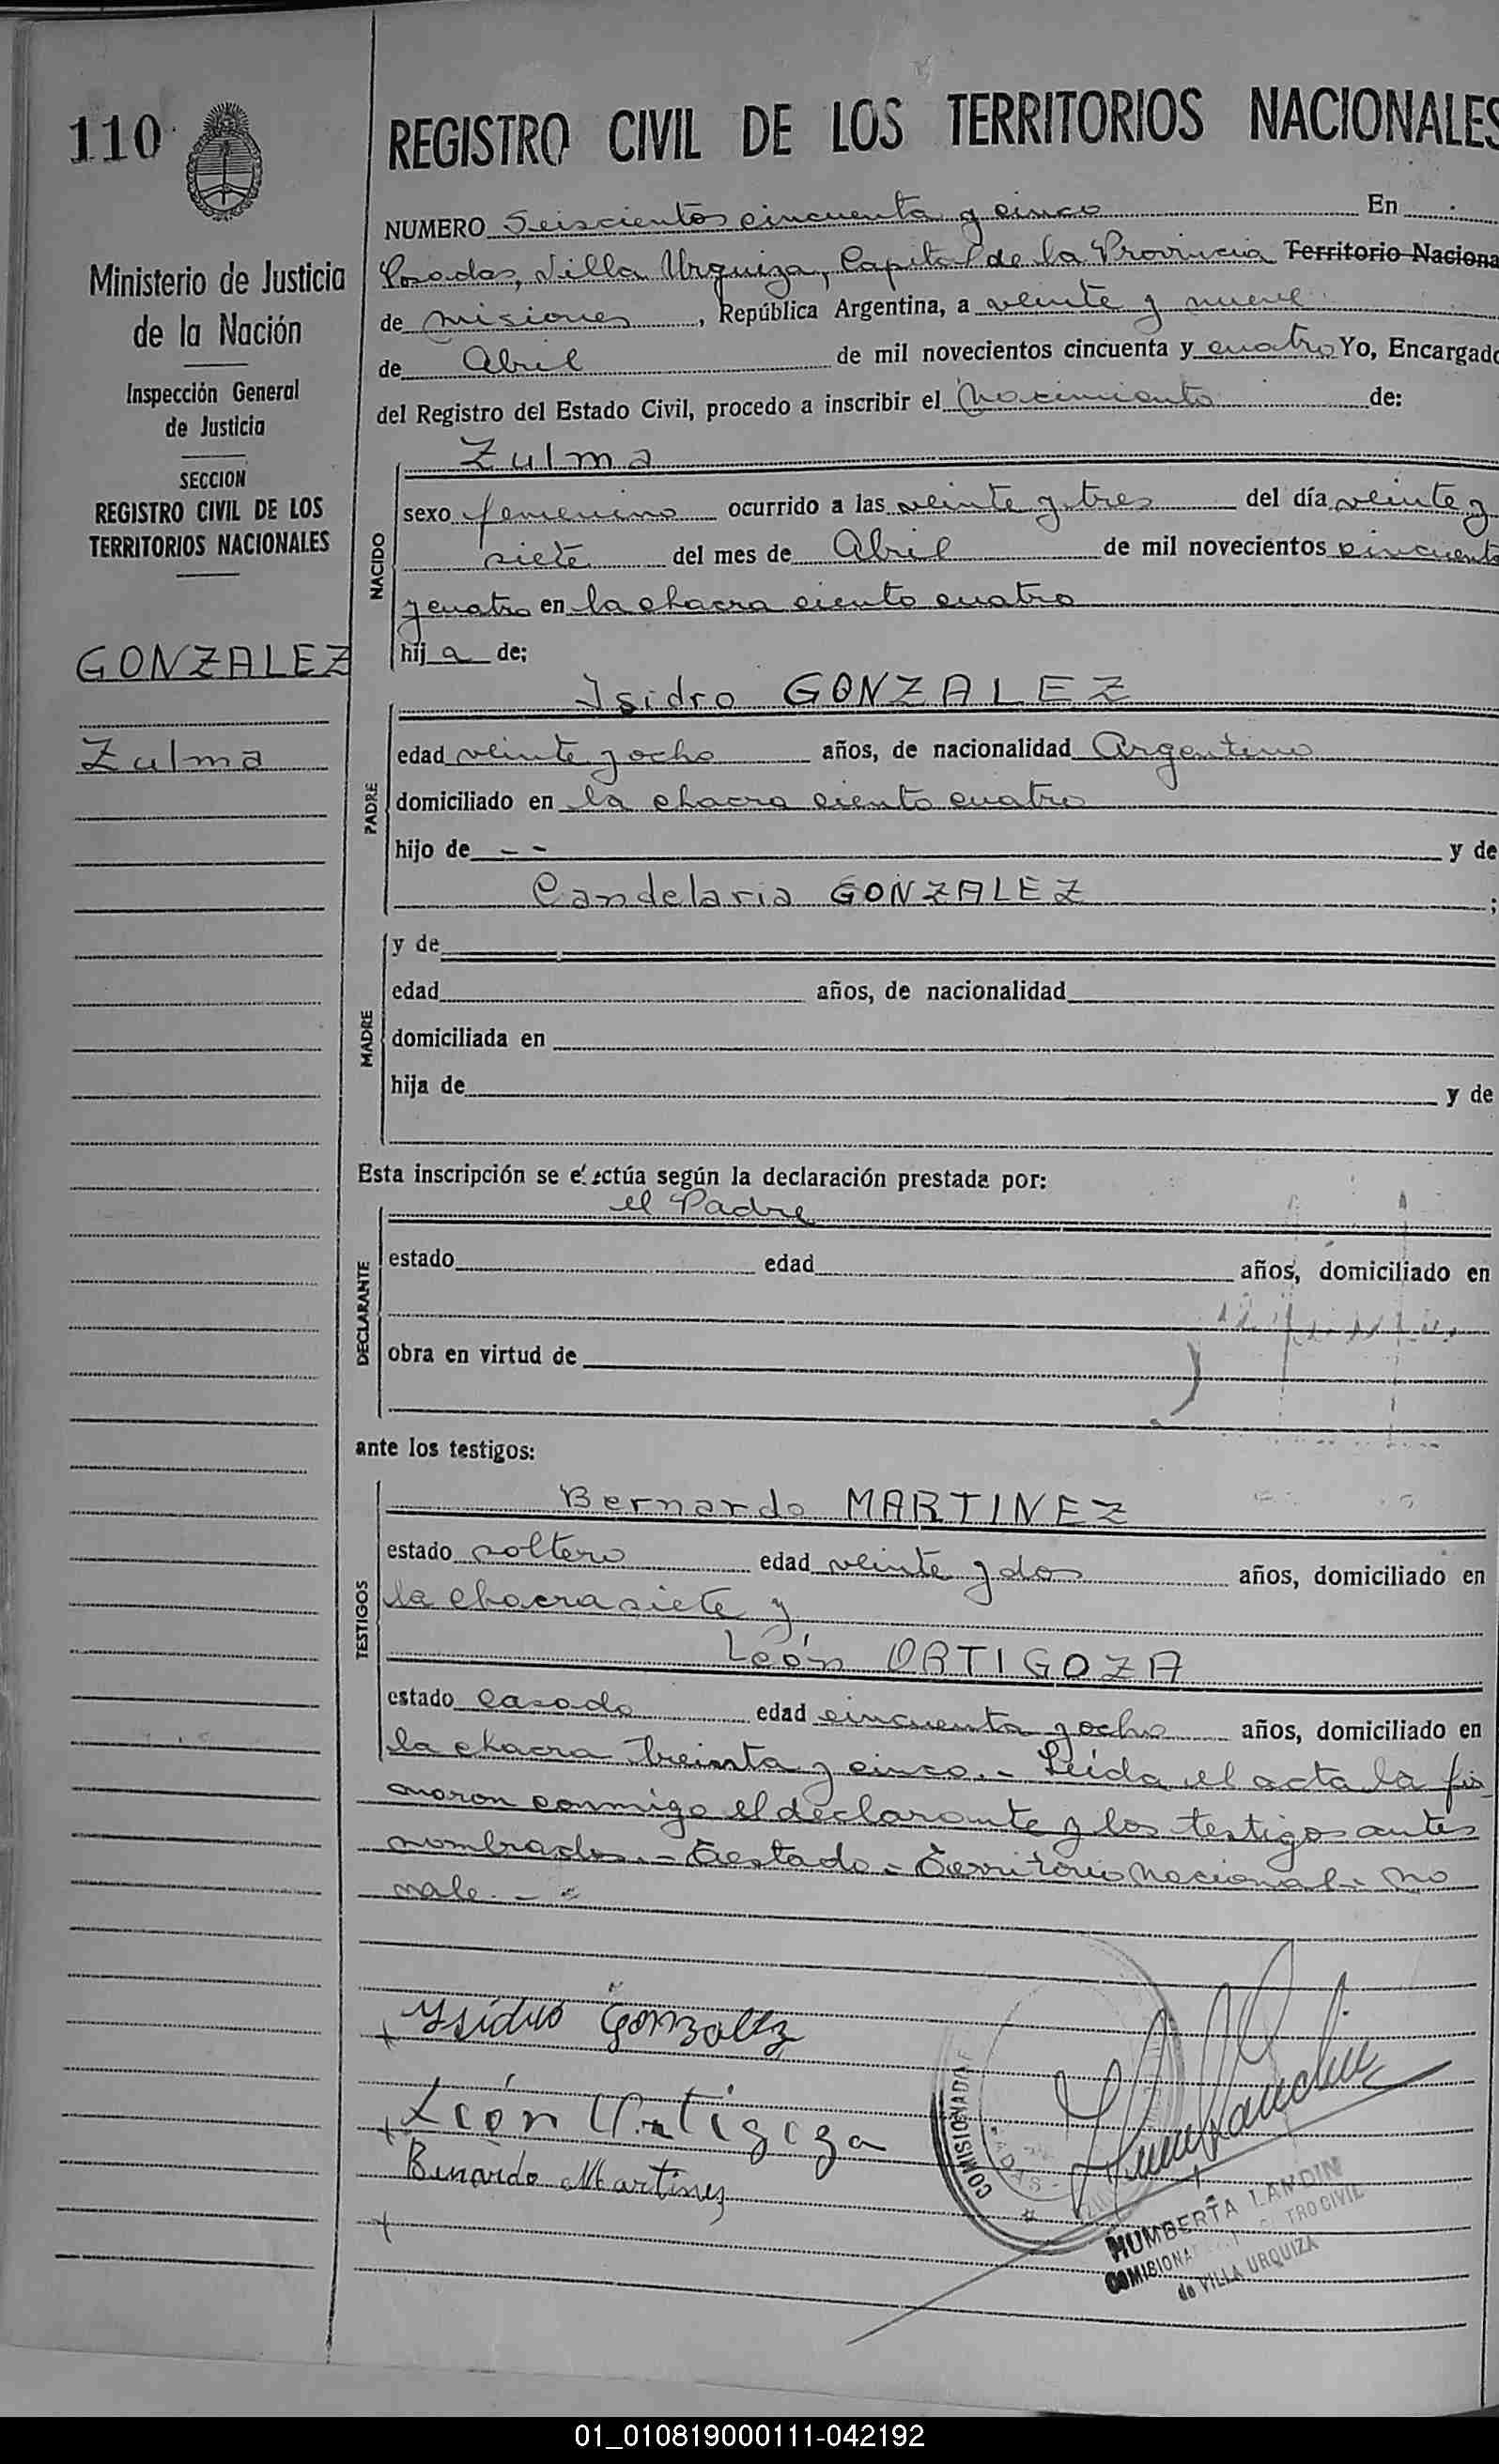 110
Ministerio de Justicia
de la Nación
Inspección General
de Justicia
SECCION
REGISTRO CIVIL DE LOS
TERRITORIOS NACIONALES
GONZALEZ
Zulma
REGISTRO CIVIL DE LOS TERRITORIOS NACIONALES
NUMERO Seiscientos cincuenta y cinco En
Posadas, Villa Urquiza, Capital de la Provincia Territorio Naciona
de Misiones, República Argentina, a veinte y nueve
de Abril de mil novecientos cincuenta y cuatro Yo, Encargado
del Registro del Estado Civil, procedo a inscribir el Nacimiento de:
NACIDO
Zulma
sexo femenino ocurrido a las veinte y tres del día veinte y
siete del mes de Abril de mil novecientos cincuenta
y cuatro en la chacra ciento cuatro
hij a de;
PADRE
Isidro GONZALEZ
edad veinte y ocho años, de nacionalidad Argentino
domiciliado en la chacra ciento cuatro
hijo de - - y de
Candelaria GONZALEZ ;
MADRE
y de
edad años, de nacionalidad
domiciliada en
hija de y de
Esta inscripción se efectúa según la declaración prestada por:
DECLARANTE
el Padre
estado edad años, domiciliado en
obra en virtud de
ante los testigos:
TESTIGOS
Bernardo MARTINEZ
estado soltero edad veinte y dos años, domiciliado en
la chacra siete y
León ORTIGOZA
estado casado edad cincuenta y ocho años, domiciliado en
la chacra treinta y cinco.- Leída el acta la fir
maron conmigo el declarante y los testigos antes
nombrados.- Testado - Territorio Nacional - no
vale.-
Ysidro Gonzalez
León Ortigoza
Benardo Martinez
COMISIONADA
HUMBERTA LANDIN
COMISIONA TRO CIVIL
de VILLA URQUIZA
01_010819000111-042192